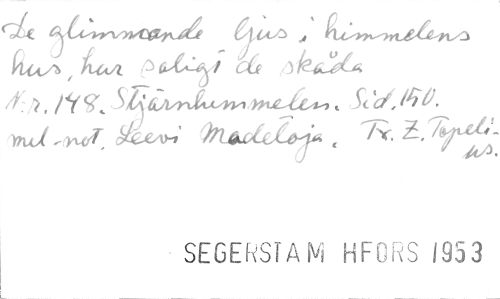 De glimmande ljus i himmelens
hus, hur saligt de skåda
N:r. 148. Stjärnhimmelen. Sid. 150.
mel-not. Leevi Madetoja. Tx. Z. Topeli-
us.
SEGERSTAM HFORS 1953